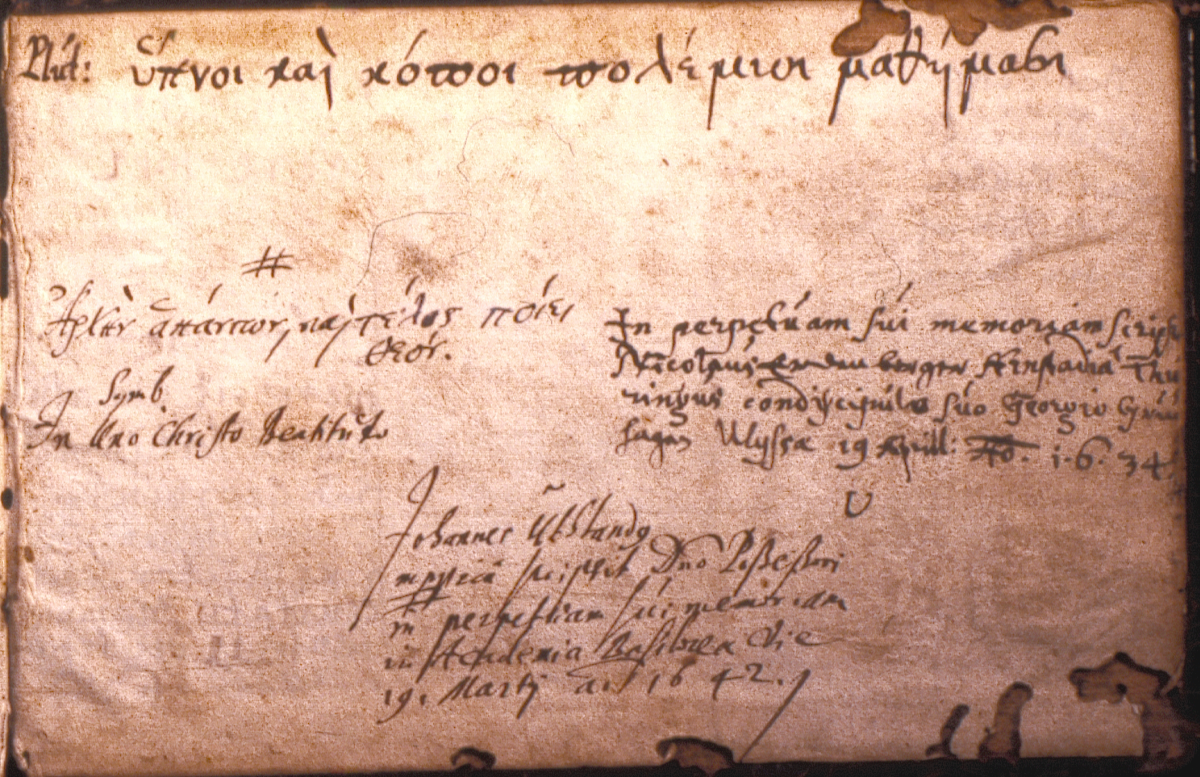 Plut: ὕπνοι καὶ κόποι πολέμιοι μαθήμασι
Ἀρχὴν ἁπάντων, καὶ τέλος πόιει
θεόν.
Symb.
In Uno Christo Beatitudo
In perpetuam sui memoriam scrips
Nicolaus Thu
ringus condiscipulo suo Georgio
Ulyssæ 19 Aprill: Ao. 1.6.34
Johannes
scripsit Dno Possessori
in perpetuam sui memoriam
in Academia die
19. Martij aō 1642.